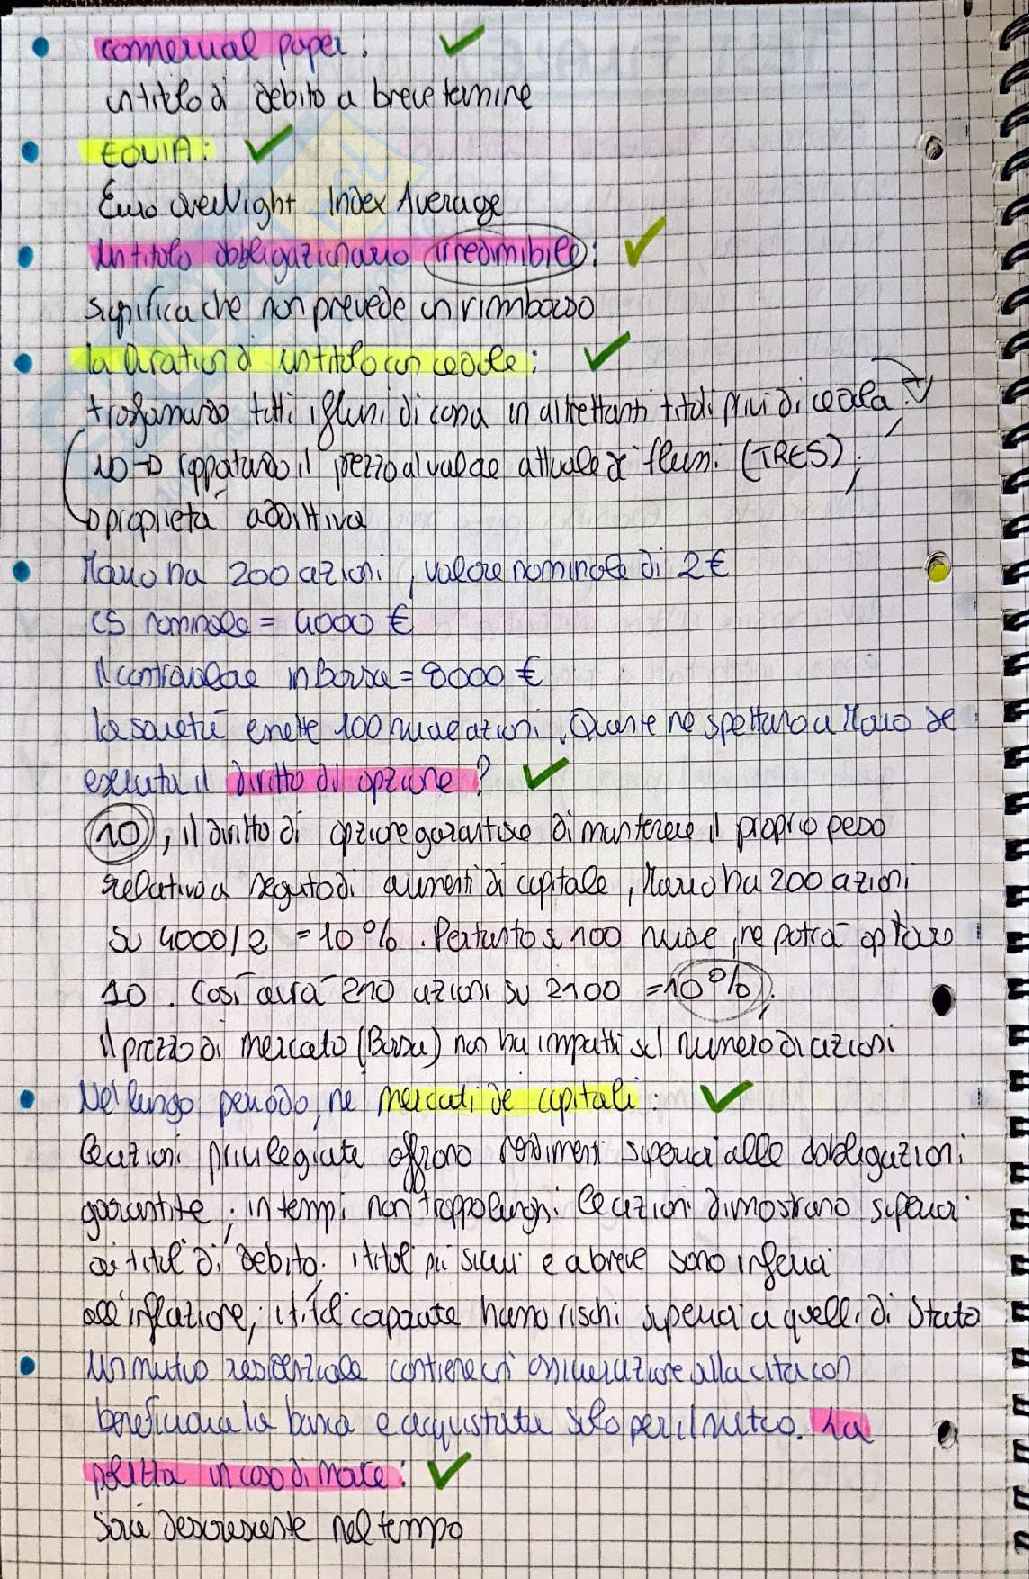 commercial paper:
un titolo di debito a breve termine
EONIA:
Euro OverNight Index Average
un titolo obbligazionario irredimibile:
significa che non prevede un rimborso
la duration di un titolo con cedole:
trasformando tutti i flussi di cassa in altrettanti titoli privi di cedola
no → rapportando il prezzo al valore attuale di flussi (TRES);
proprietà additiva
Mario ha 200 azioni, valore nominale di 2€
CS nominale = 4000 €
Il controvalore in Borsa = 8000 €
la società emette 100 nuove azioni. Quante ne spettano a Mario se
esercita il diritto di opzione?
10, il diritto di opzione garantisce di mantenere il proprio peso
relativo a seguito di aumenti di capitale, Mario ha 200 azioni
su 4000/2 = 10%. Pertanto su 100 nuove, ne potrà optare
10. Così avrà 210 azioni su 2100 = 10%.
Il prezzo di mercato (Borsa) non ha impatti sul numero di azioni
Nel lungo periodo, ne mercati de capitali:
le azioni privilegiate offrono rendimenti superiori alle obbligazioni
garantite; in tempi non troppo lunghi le azioni dimostrano superiori
ai titoli di debito; i titoli più sicuri e a breve sono inferiori
all'inflazione; i titoli corporate hanno rischi superiori a quelli di Stato
Un mutuo residenziale contiene un'assicurazione alla vita con
beneficiaria la banca e acquistata solo per il mutuo. La
polizza in caso di morte:
Sarà decrescente nel tempo